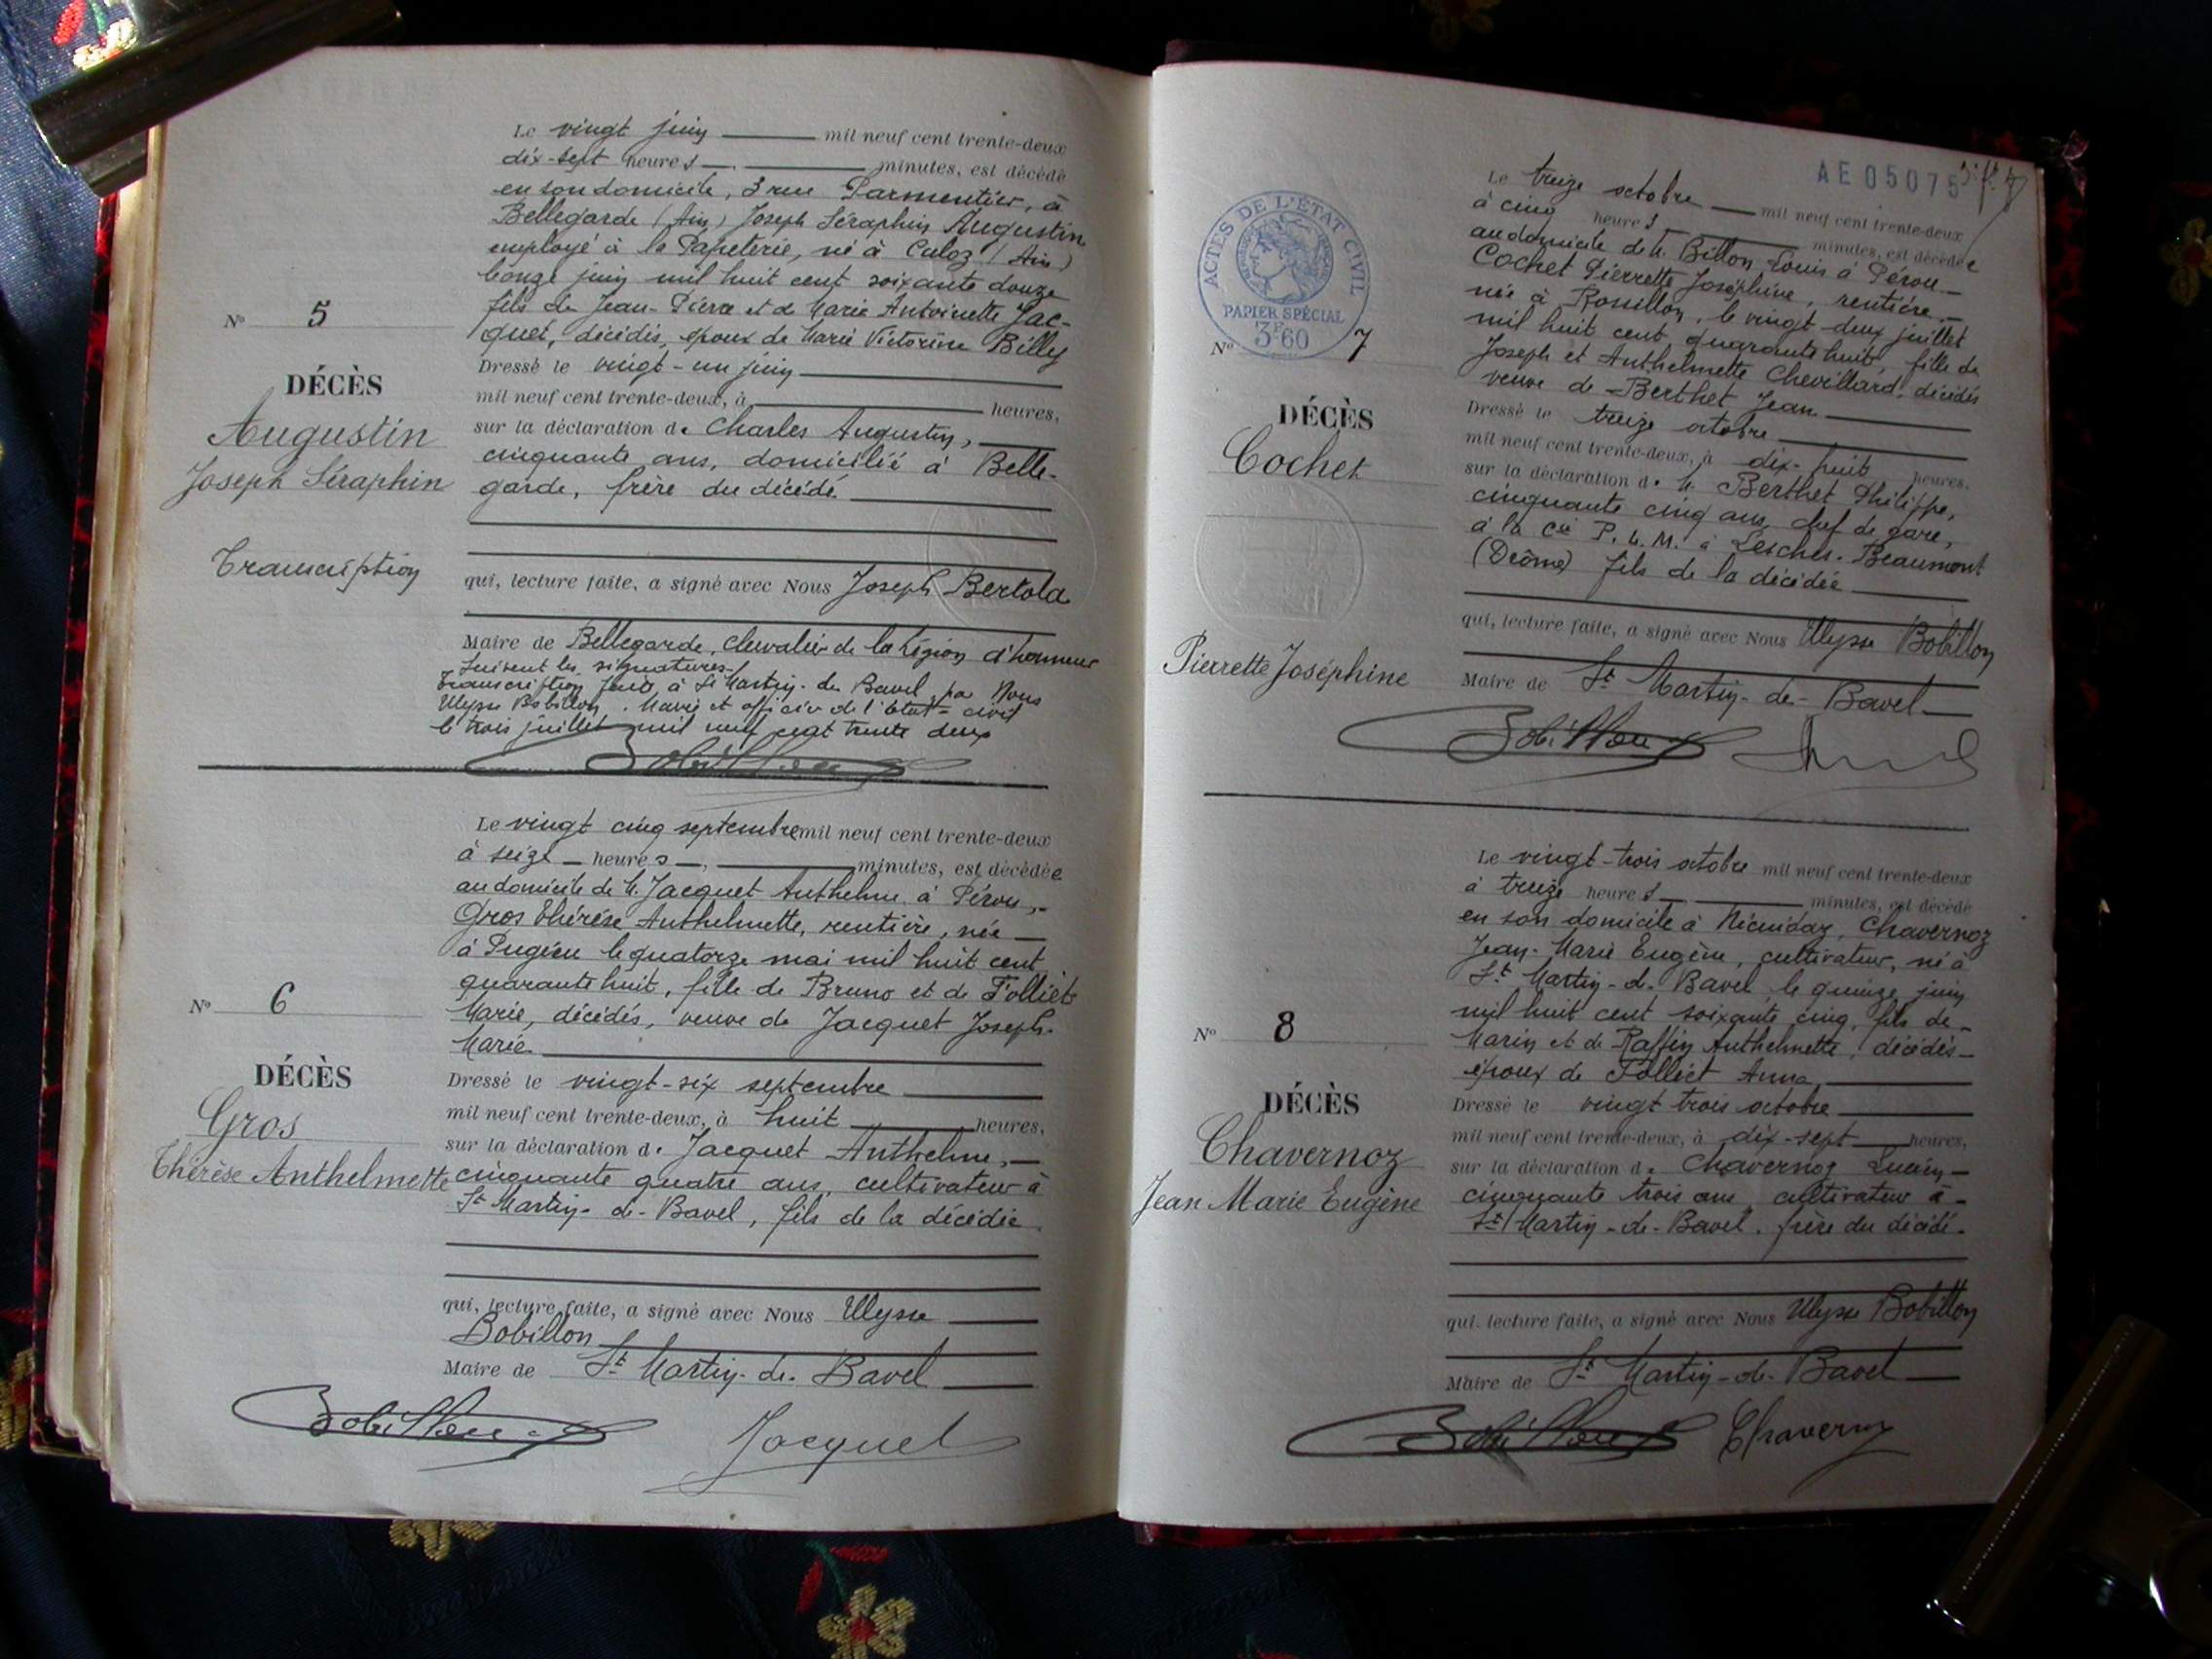 Le vingt juin mil neuf cent trente-deux
dix-sept heures minutes, est décédé
en son domicile, 3 rue Parmentier, à
Bellegarde (Ain) Joseph Séraphin Augustin
employé à la Papeterie, né à Culoz (Ain)
le onze juin mil huit cent soixante douze
fils de Jean-Pierre et de Marie Antoinette Jac-
quet, décédés, époux de Marie Victorine Billy
Nº 5
DÉCÈS
Augustin
Joseph Séraphin
Transcription
Dressé le vingt-un juin
mil neuf cent trente-deux, à heures,
sur la déclaration de Charles Augustin,
cinquante ans, domicilié à Belle-
garde, frère du décédé
qui, lecture faite, a signé avec Nous Joseph Bertola
Maire de Bellegarde, chevalier de la Légion d'honneur
Suivent les signatures.
Transcription faite à St Martin-de-Bavel par Nous
Ulysse Bobillon, Maire et officier de l'état-civil
le trois juillet mil neuf cent trente deux
Bobillon
Le vingt cinq septembre mil neuf cent trente-deux
à seize heures minutes, est décédée
au domicile de M. Jacquet Anthelme à Pérou,
Gros Thérèse Anthelmette, rentière, née
à Pugieu le quatorze mai mil huit cent
quarante huit, fille de Bruno et de Folliet
Marie, décédés, veuve de Jacquet Joseph-
Marie
Nº 6
DÉCÈS
Gros
Thérèse Anthelmette
Dressé le vingt-six septembre
mil neuf cent trente-deux, à huit heures,
sur la déclaration de Jacquet Anthelme,
cinquante quatre ans, cultivateur à
St Martin-de-Bavel, fils de la décédée
qui, lecture faite, a signé avec Nous Ulysse
Bobillon
Maire de St Martin-de-Bavel
Bobillon Jacquet
AE05075
ACTES DE L'ÉTAT CIVIL
PAPIER SPÉCIAL
3F60
Le treize octobre mil neuf cent trente-deux
à cinq heures minutes, est décédée
au domicile de M. Billon Louis à Pérou
Cochet Pierrette Joséphine, rentière,
née à Rossillon, le vingt-deux juillet
mil huit cent quarante huit, fille de
Joseph et Anthelmette Chevillard, décédés
veuve de Berthet Jean
Nº 7
DÉCÈS
Cochet
Pierrette Joséphine
Dressé le treize octobre
mil neuf cent trente-deux, à dix-huit heures,
sur la déclaration de M. Berthet Philippe,
cinquante cinq ans, chef de gare,
à la Cie P.L.M. à Lesches-Beaumont
(Drôme) fils de la décédée
qui, lecture faite, a signé avec Nous Ulysse Bobillon
Maire de St Martin-de-Bavel
Bobillon
Le vingt-trois octobre mil neuf cent trente-deux
à treize heures minutes, est décédé
en son domicile à Chavernoz
Jean-Marie Eugène, cultivateur, né à
St Martin-de-Bavel le quinze juin
mil huit cent soixante cinq, fils de
Marin et de Raffin Anthelmette, décédés
époux de Folliet Anna
Nº 8
DÉCÈS
Chavernoz
Jean Marie Eugène
Dressé le vingt trois octobre
mil neuf cent trente-deux, à dix-sept heures,
sur la déclaration de Chavernoz Lucien
cinquante trois ans, cultivateur à
St Martin-de-Bavel, frère du décédé.
qui, lecture faite, a signé avec Nous Ulysse Bobillon
Maire de St Martin-de-Bavel
Bobillon Chavernoz